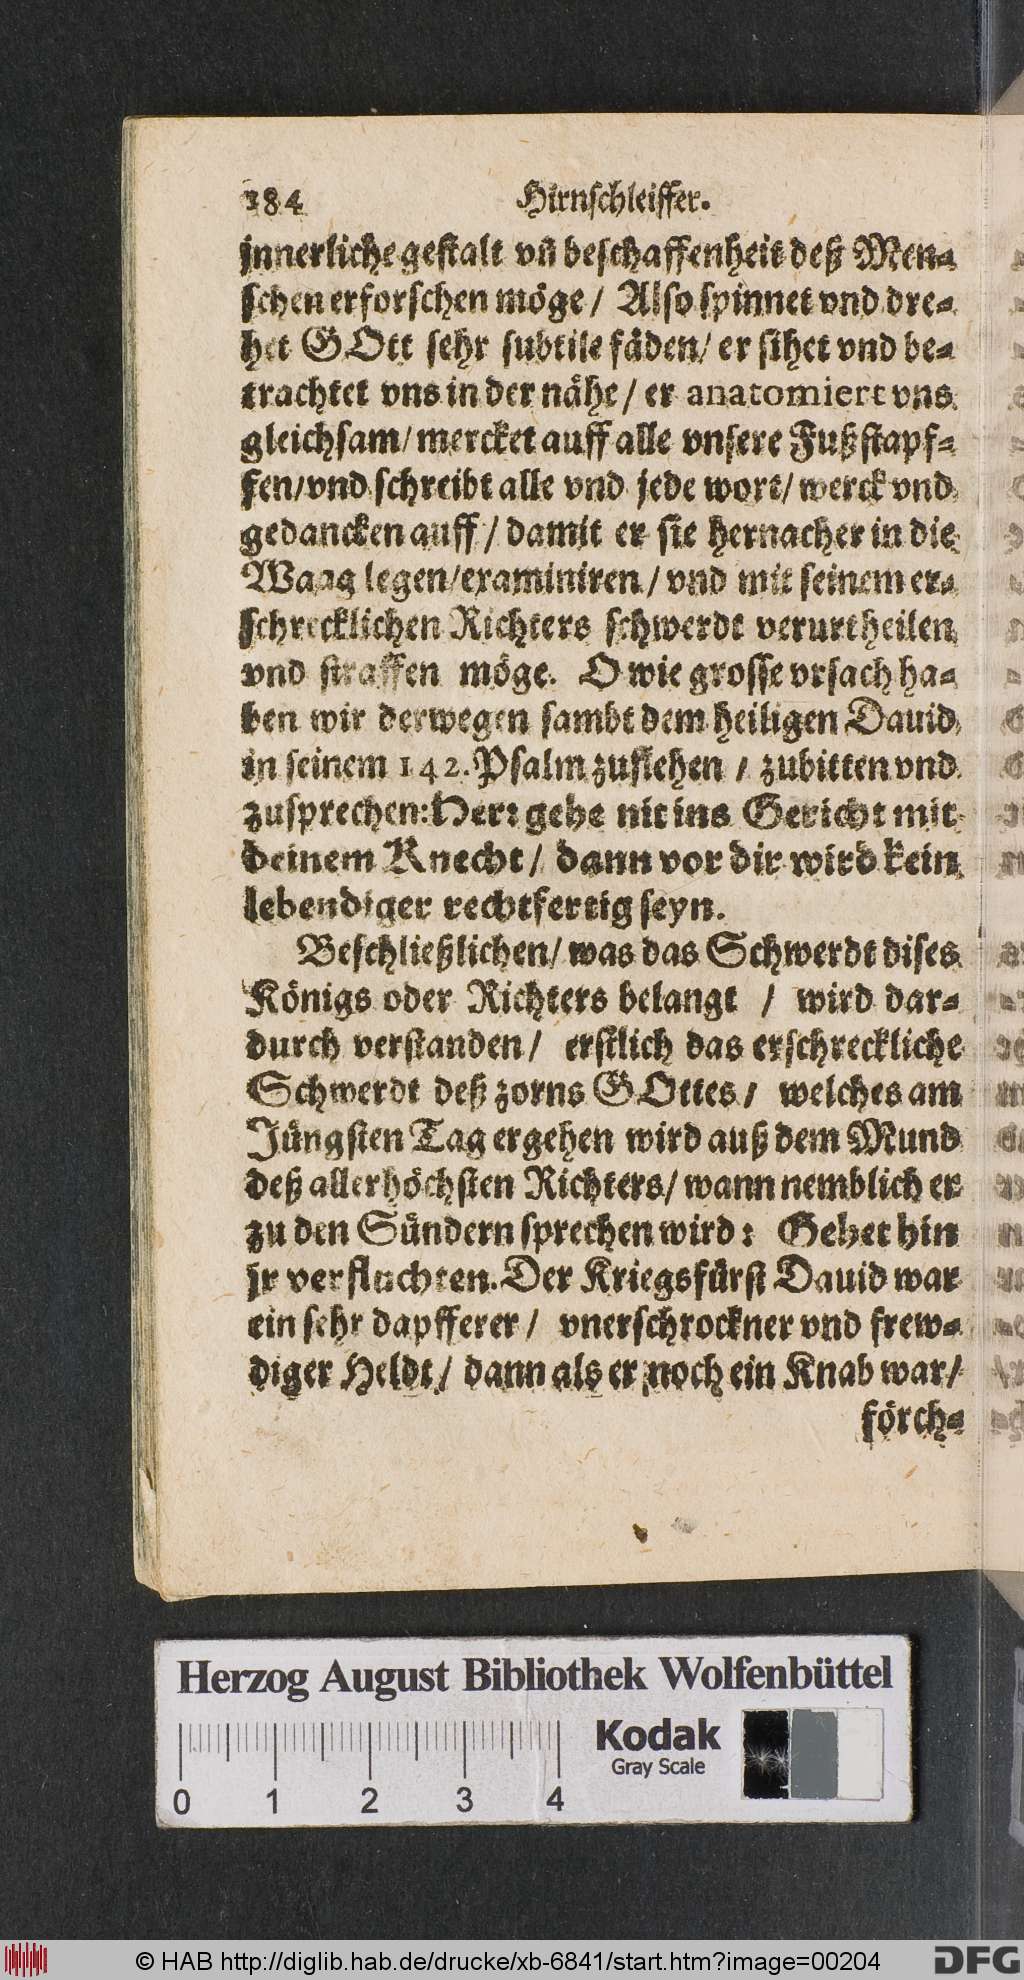 184 Hirnschleiffer.
innerliche gestalt vñ beschaffenheit deß Men-
schen erforschen möge / Also spinnet vnd dre-
het GOtt sehr subtile fäden / er sihet vnd be-
trachtet vns in der nähe / er anatomiert vns
gleichsam / mercket auff alle vnsere Fußstapf-
fen / vnd schreibt alle vnd jede wort / werck vnd
gedancken auff / damit er sie hernacher in die
Waag legen / examiniren / vnd mit seinem er-
schrecklichen Richters schwerdt verurtheilen
vnd straffen möge. O wie grosse vrsach ha-
ben wir derwegen sambt dem heiligen Dauid
in seinem 142. Psalm zuflehen / zubitten vnd
zusprechen: Herr gehe nit ins Gericht mit
deinem Knecht / dann vor dir wird kein
lebendiger rechtfertig seyn.
Beschließlichen / was das Schwerdt dises
Königs oder Richters belangt / wird dar-
durch verstanden / erstlich das erschreckliche
Schwerdt deß zorns GOttes / welches am
Jüngsten Tag ergehen wird auß dem Mund
deß allerhöchsten Richters / wann nemblich er
zu den Sündern sprechen wird: Gehet hin
jr verfluchten. Der Kriegsfürst Dauid war
ein sehr dapfferer / vnerschrockner vnd frew-
diger Heldt / dann als er noch ein Knab war /
förch-
Herzog August Bibliothek Wolfenbüttel
Kodak
Gray Scale
0 1 2 3 4
© HAB http://diglib.hab.de/drucke/xb-6841/start.htm?image=00204
DFG